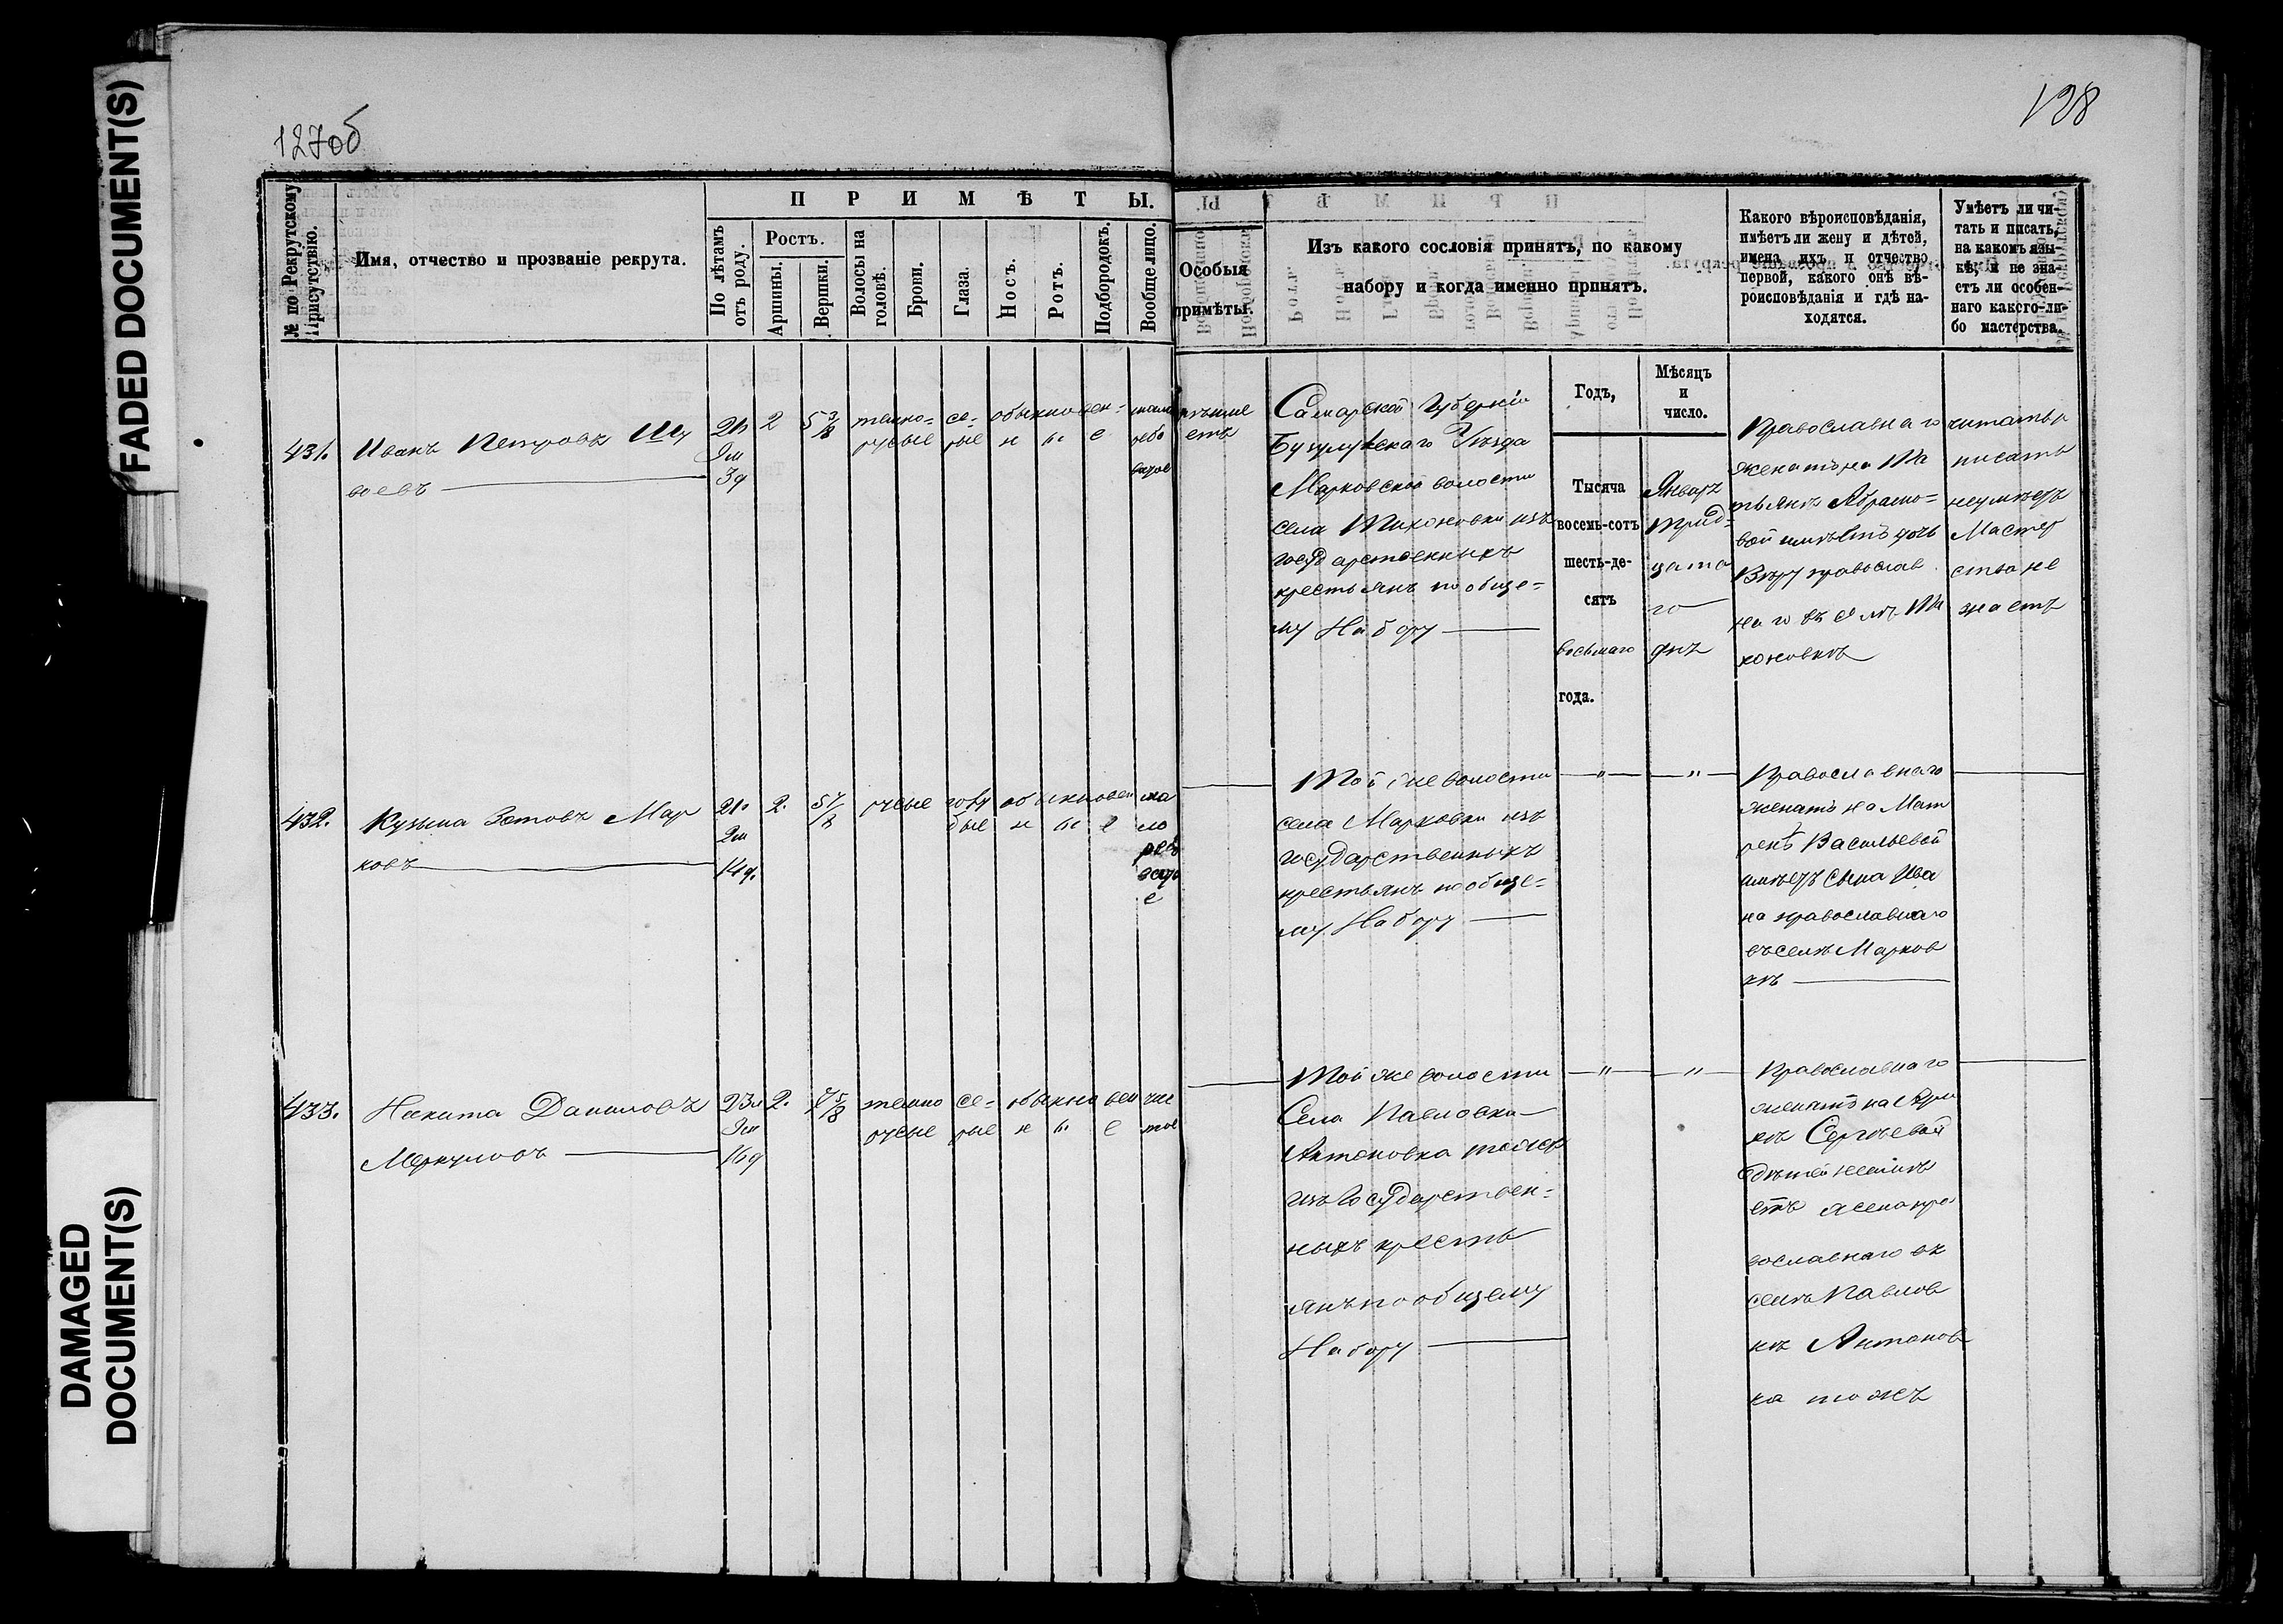 FADED DOCUMENT(S)
DAMAGED
DOCUMENT(S)
127об
128
№ по Рекрутскому
Присутствію.
Имя, отчество и прозваніе рекрута.
ПРИМѢТЫ.
По лѣтамъ
отъ роду.
Ростъ.
Аршины.
Вершки.
Волосы на
головѣ.
Брови.
Глаза.
Носъ.
Ротъ.
Подбородокъ.
Вообще лицо.
Особыя
примѣты.
Изъ какого сословія принятъ, по какому
набору и когда именно принятъ.
Какого вѣроисповѣданія,
имѣетъ ли жену и дѣтей,
имена ихъ и отчество
первой, какого онѣ вѣ-
роисповѣданія и гдѣ на-
ходятся.
Умѣетъ ли чи-
тать и писать,
на какомъ язы-
кѣ, и не зна-
етъ ли особен-
наго какого-ли-
бо мастерства.
Годъ,
Мѣсяцъ
и
число.
431. Иванъ Петровъ Шу
воевъ
9м
3д
2
5 3/8
темно=
русые
се=
рые
обыкновен=
н ы е
Самарской Губерніи
Бузулукскаго Уѣзда
Марковской волости
села Тихоновки изъ
государственныхъ
крестьянъ по обще=
му Набору
Тысяча
восемь-сотъ
шесть-де-
сятъ
восьмаго
года.
Январь
трид=
цата
го
днъ
Православнаго
женатъ на Та
тьянѣ Абрамо=
вой имѣетъ дочь
Вѣру православ
наго въ селѣ Ти
хоновкѣ
читать и
писать
неумѣетъ
Мастер
ства не
знаетъ
432. Кузьма Зотовъ Мар
ковъ
2м
14д.
2.
русые
голу
бые
обыкновен
н ы е
ма
ло
ряб
оват
е
Той же волости
села Марковки изъ
государственныхъ
крестьянъ по обще=
му Набору
"
"
Православнаго
женатъ на Мат
ренѣ Васильевой
имѣетъ сына Ива
на православнаго
въ селѣ Марков
кѣ
433. Никита Даниловъ
Меркуловъ
23л
9м
16д
2.
темно
русые
се=
рые
обыкновен
н ы е
чис
тое
Той же волости
Села Павловки
Антоновка тожъ
изъ Государствен=
ныхъ кресть
янъ по общему
Набору
"
"
Православнаго
женатъ на Ари
нѣ Сергѣевой
дѣтей не имѣ
етъ жена пра
вославнаго въ
селѣ Павлов
кѣ Антонов
ка тожъ